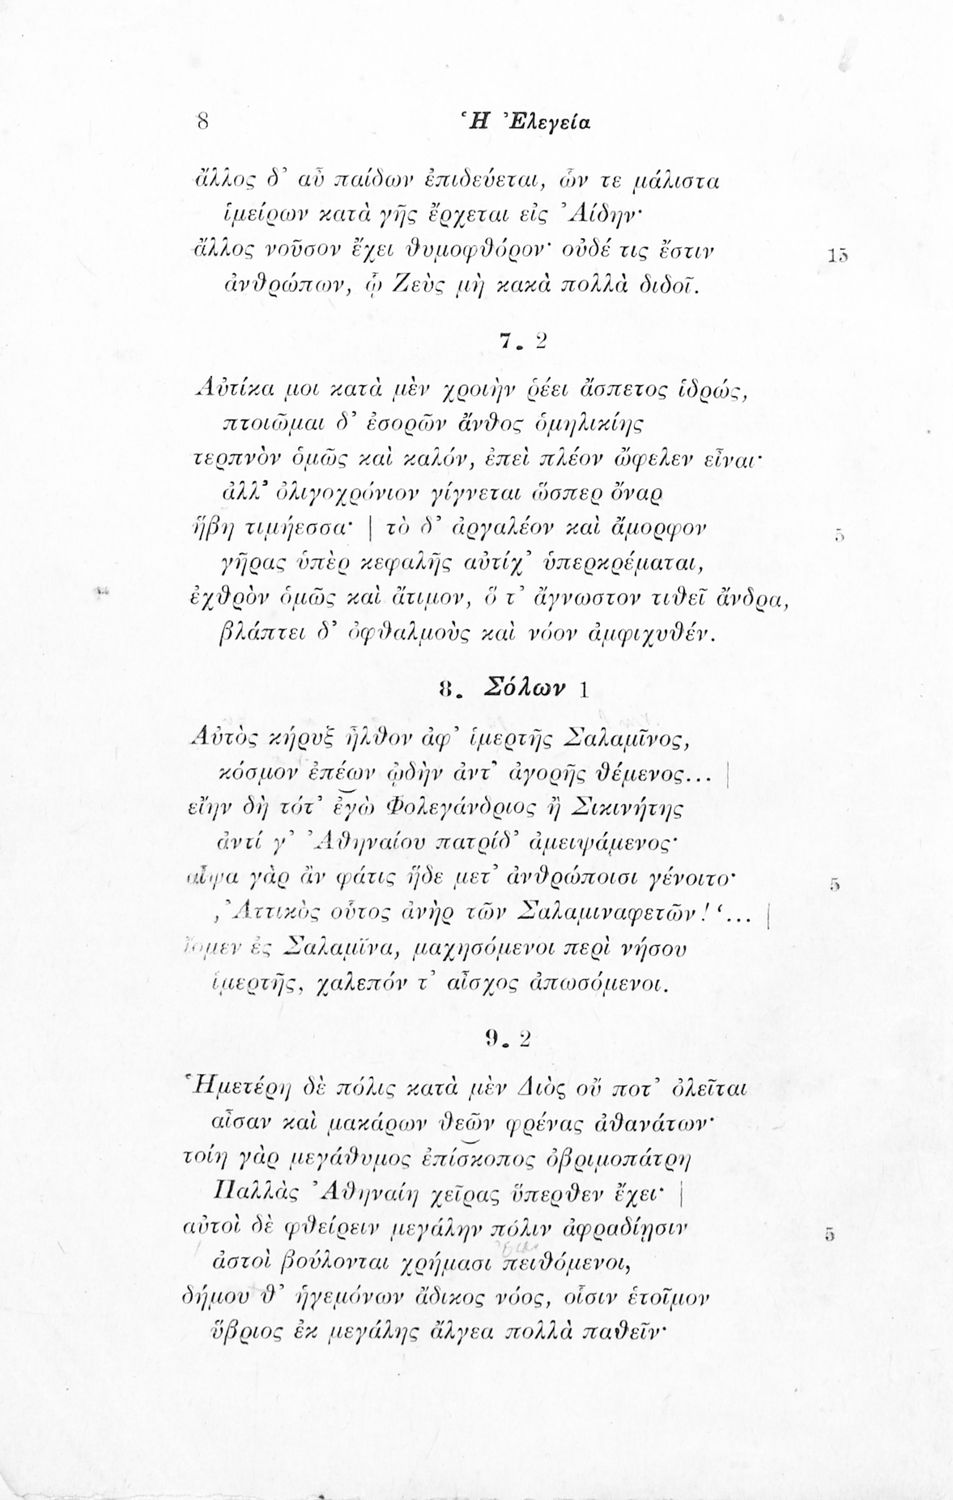 8 Ἡ Ἐλεγεία
ἄλλος δ’ αὖ παίδων ἐπιδεύεται, ὧν τε μάλιστα
ἱμείρων κατὰ γῆς ἔρχεται εἰς Ἀίδην·
ἄλλος νοῦσον ἔχει θυμοφθόρον· οὐδέ τις ἔστιν 15
ἀνθρώπων, ᾧ Ζεὺς μὴ κακὰ πολλὰ διδοῖ.
7. 2
Αὐτίκα μοι κατὰ μὲν χροιὴν ῥέει ἄσπετος ἱδρώς,
πτοιῶμαι δ’ ἐσορῶν ἄνθος ὁμηλικίης
τερπνὸν ὁμῶς καὶ καλόν, ἐπεὶ πλέον ὤφελεν εἶναι·
ἀλλ’ ὀλιγοχρόνιον γίγνεται ὥσπερ ὄναρ
ἥβη τιμήεσσα· | τὸ δ’ ἀργαλέον καὶ ἄμορφον 5
γῆρας ὑπὲρ κεφαλῆς αὐτίχ’ ὑπερκρέμαται,
ἐχθρὸν ὁμῶς καὶ ἄτιμον, ὅ τ’ ἄγνωστον τιθεῖ ἄνδρα,
βλάπτει δ’ ὀφθαλμοὺς καὶ νόον ἀμφιχυθέν.
8. Σόλων 1
Αὐτὸς κήρυξ ἦλθον ἀφ’ ἱμερτῆς Σαλαμῖνος,
κόσμον ἐπέων ᾠδὴν ἀντ’ ἀγορῆς θέμενος... |
εἴην δὴ τότ’ ἐγὼ Φολεγάνδριος ἢ Σικινήτης
ἀντί γ’ Ἀθηναίου πατρίδ’ ἀμειψάμενος·
αἶψα γὰρ ἂν φάτις ἥδε μετ’ ἀνθρώποισι γένοιτο· 5
‚Ἀττικὸς οὗτος ἀνὴρ τῶν Σαλαμιναφετῶν!‘... |
ἴομεν ἐς Σαλαμῖνα, μαχησόμενοι περὶ νήσου
ἱμερτῆς, χαλεπόν τ’ αἶσχος ἀπωσόμενοι.
9. 2
Ἡμετέρη δὲ πόλις κατὰ μὲν Διὸς οὔ ποτ’ ὀλεῖται
αἶσαν καὶ μακάρων θεῶν φρένας ἀθανάτων·
τοίη γὰρ μεγάθυμος ἐπίσκοπος ὀβριμοπάτρη
Παλλὰς Ἀθηναίη χεῖρας ὕπερθεν ἔχει· |
αὐτοὶ δὲ φθείρειν μεγάλην πόλιν ἀφραδίῃσιν 5
ἀστοὶ βούλονται χρήμασι πειθόμενοι,
δήμου θ’ ἡγεμόνων ἄδικος νόος, οἷσιν ἑτοῖμον
ὕβριος ἐκ μεγάλης ἄλγεα πολλὰ παθεῖν·